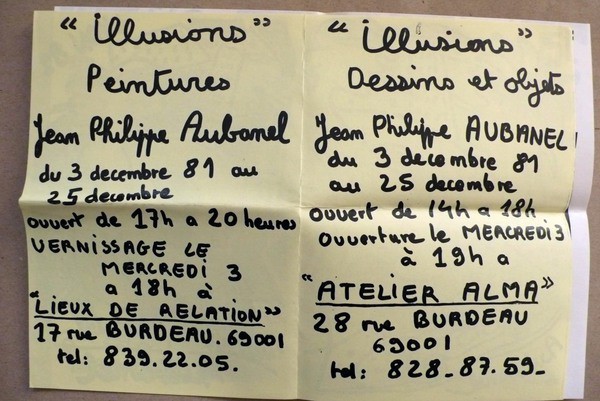 “illusions”
Peintures
Jean Philippe Aubanel
du 3 decembre 81 au
25 decembre
ouvert de 17h a 20 heures
VERNISSAGE LE
MERCREDI 3
a 18h à
“LIEUX DE RELATION”
17 rue BURDEAU. 69001
tel: 839.22.05.
“illusions”
Dessins et objets
Jean Philippe AUBANEL
du 3 decembre 81
au 25 decembre
ouvert de 14h a 18h
ouverture le MERCREDI 3
à 19h a
“ATELIER ALMA”
28 rue BURDEAU
69001
tel: 828_87.59_